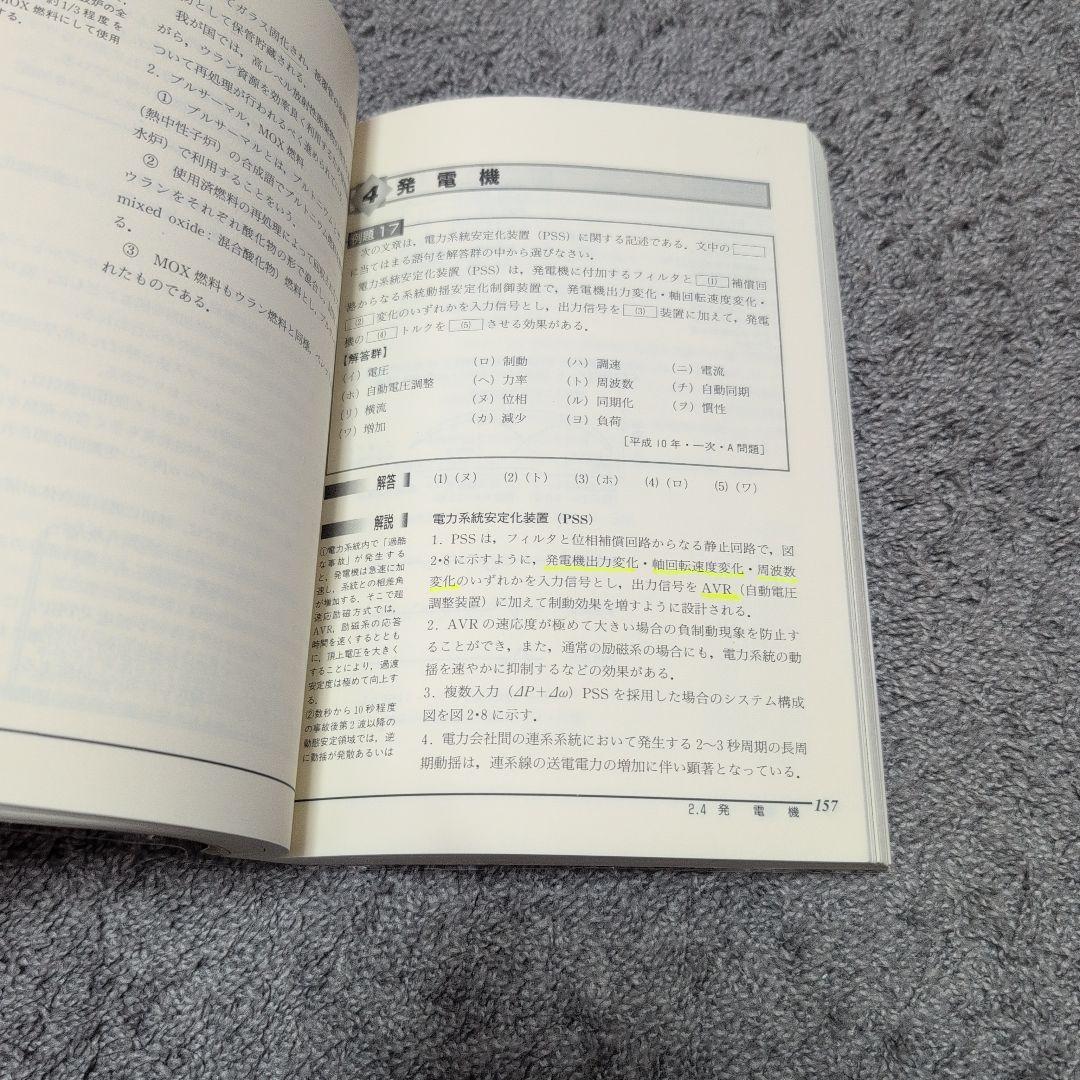 炉の全
約1/3程度を
MOX燃料にして使用
する.
てガラス固化され,
的として保管貯蔵される.
我が国では,高レベル放射性
がら,ウラン資源を効率良く利用する
ついて再処理が行われるべく進め
2. プルサーマル,MOX燃料
① プルサーマルとは,プルトニウム
(熱中性子炉)の合成語でプルトニウム
水炉)で利用することをいう.
② 使用済燃料の再処理によって
ウランをそれぞれ酸化物の形で混合し
mixed oxide:混合酸化物)燃料とし,
る.
③ MOX燃料もウラン燃料と同様,
れたものである.
4 発電機
例題17
次の文章は,電力系統安定化装置(PSS)に関する記述である.文中の
に当てはまる語句を解答群の中から選びなさい.
電力系統安定化装置(PSS)は,発電機に付加するフィルタと (1) 補償回
路からなる系統動揺安定化制御装置で,発電機出力変化・軸回転速度変化・
(2) 変化のいずれかを入力信号とし,出力信号を (3) 装置に加えて,発電
機の (4) トルクを (5) させる効果がある.
【解答群】
(イ)電圧 (ロ)制動 (ハ)調速 (ニ)電流
(ホ)自動電圧調整 (ヘ)力率 (ト)周波数 (チ)自動同期
(リ)横流 (ヌ)位相 (ル)同期化 (ヲ)慣性
(ワ)増加 (カ)減少 (ヨ)負荷
[平成10年・一次・A問題]
解答 (1)(ヌ) (2)(ト) (3)(ホ) (4)(ロ) (5)(ワ)
解説
①電力系統内で「過酷
な事故」が発生する
と,発電機は急速に加
速し,系統との相差角
が増加する.そこで超
速応励磁方式では,
AVR,励磁系の応答
時間を速くするととも
に,頂上電圧を大きく
することにより,過渡
安定度は極めて向上す
る.
②数秒から10秒程度
の事故後第2波以降の
動態安定領域では,逆
に動揺が発散あるいは
電力系統安定化装置(PSS)
1. PSSは,フィルタと位相補償回路からなる静止回路で,図
2・8に示すように,発電機出力変化・軸回転速度変化・周波数
変化のいずれかを入力信号とし,出力信号をAVR(自動電圧
調整装置)に加えて制動効果を増すように設計される.
2. AVRの速応度が極めて大きい場合の負制動現象を防止す
ることができ,また,通常の励磁系の場合にも,電力系統の動
揺を速やかに抑制するなどの効果がある.
3. 複数入力(ΔP+Δω)PSSを採用した場合のシステム構成
図を図2・8に示す.
4. 電力会社間の連系系統において発生する2〜3秒周期の長周
期動揺は,連系線の送電電力の増加に伴い顕著となっている.
2.4 発電機 157